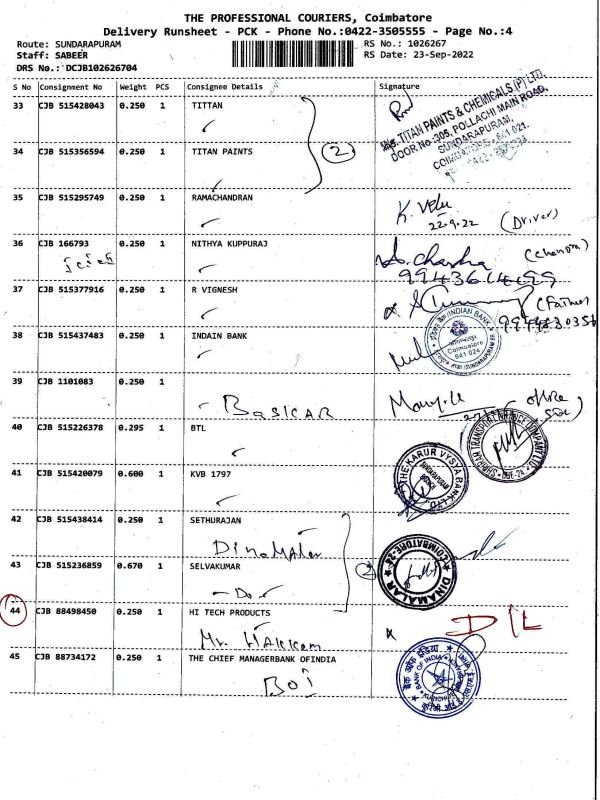 THE PROFESSIONAL COURIERS, Coimbatore
Delivery Runsheet - PCK - Phone No.:0422-3505555 - Page No.:4
Route: SUNDARAPURAM RS No.: 1026267
Staff: SABEER RS Date: 23-Sep-2022
DRS No.: DCJB102626704
S No Consignment No Weight PCS Consignee Details Signature
33 CJB 515428043 0.250 1 TITTAN
M/s. TITAN PAINTS & CHEMICALS (P) LTD.
DOOR No.:305, POLLACHI MAIN ROAD,
SUNDARAPURAM,
COIMBATORE - 641 021.
2
34 CJB 515356594 0.250 1 TITAN PAINTS
35 CJB 515295749 0.250 1 RAMACHANDRAN
K. Velu
22.9.22 (Driver)
36 CJB 166793 0.250 1 NITHYA KUPPURAJ
37 CJB 515377916 0.250 1 R VIGNESH
(Father
38 CJB 515437483 0.250 1 INDAIN BANK
INDIAN BANK
Coimbatore
641 024
39 CJB 1101083 0.250 1
BASICAR
40 CJB 515226378 0.295 1 BTL
41 CJB 515420079 0.600 1 KVB 1797
THE KARUR VYSYA BANK LTD
42 CJB 515438414 0.250 1 SETHURAJAN
Dinamalar
43 CJB 515236859 0.670 1 SELVAKUMAR
Do
2
DINAMALAR
COIMBATORE-24
44 CJB 88498450 0.250 1 HI TECH PRODUCTS
Mr. HAKKEM
D/L
45 CJB 88734172 0.250 1 THE CHIEF MANAGERBANK OFINDIA
BOI
बैंक ऑफ इंडिया
BANK OF INDIA